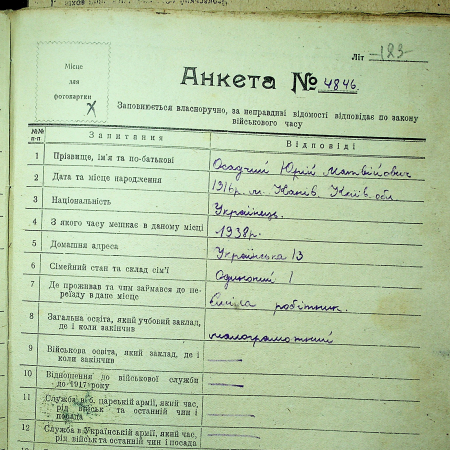 Літ -183-
Місце
для
фотокартки
Анкета № 4846.
Заповнюється власноручно, за неправдиві відомості відповідає по закону
військового часу
№№ п-п
Запитання
Відповіді
1 Прізвище, ім'я та по-батькові Осадчий Юрій Матвійович
2 Дата та місце народження 1916р. м. Канів, Київ. обл.
3 Національність Українець.
4 З якого часу мешкає в даному місці 1938р.
5 Домашня адреса Українська 13
6 Сімейний стан та склад сім'ї Одинокий 1
7 Де проживав та чим займався до пе-
реїзду в дане місце робітник.
8 Загальна освіта, який учбовий заклад,
де і коли закінчив малограмотний
9 Військова освіта, який заклад, де і
коли закінчив
10 Відношення до військової служби
до 1917 року
11 Служба в б. царській армії, який час,
рід військ та останній чин і
посада
12 Служба в Українській армії, який час,
рід військ та останній чин і посада